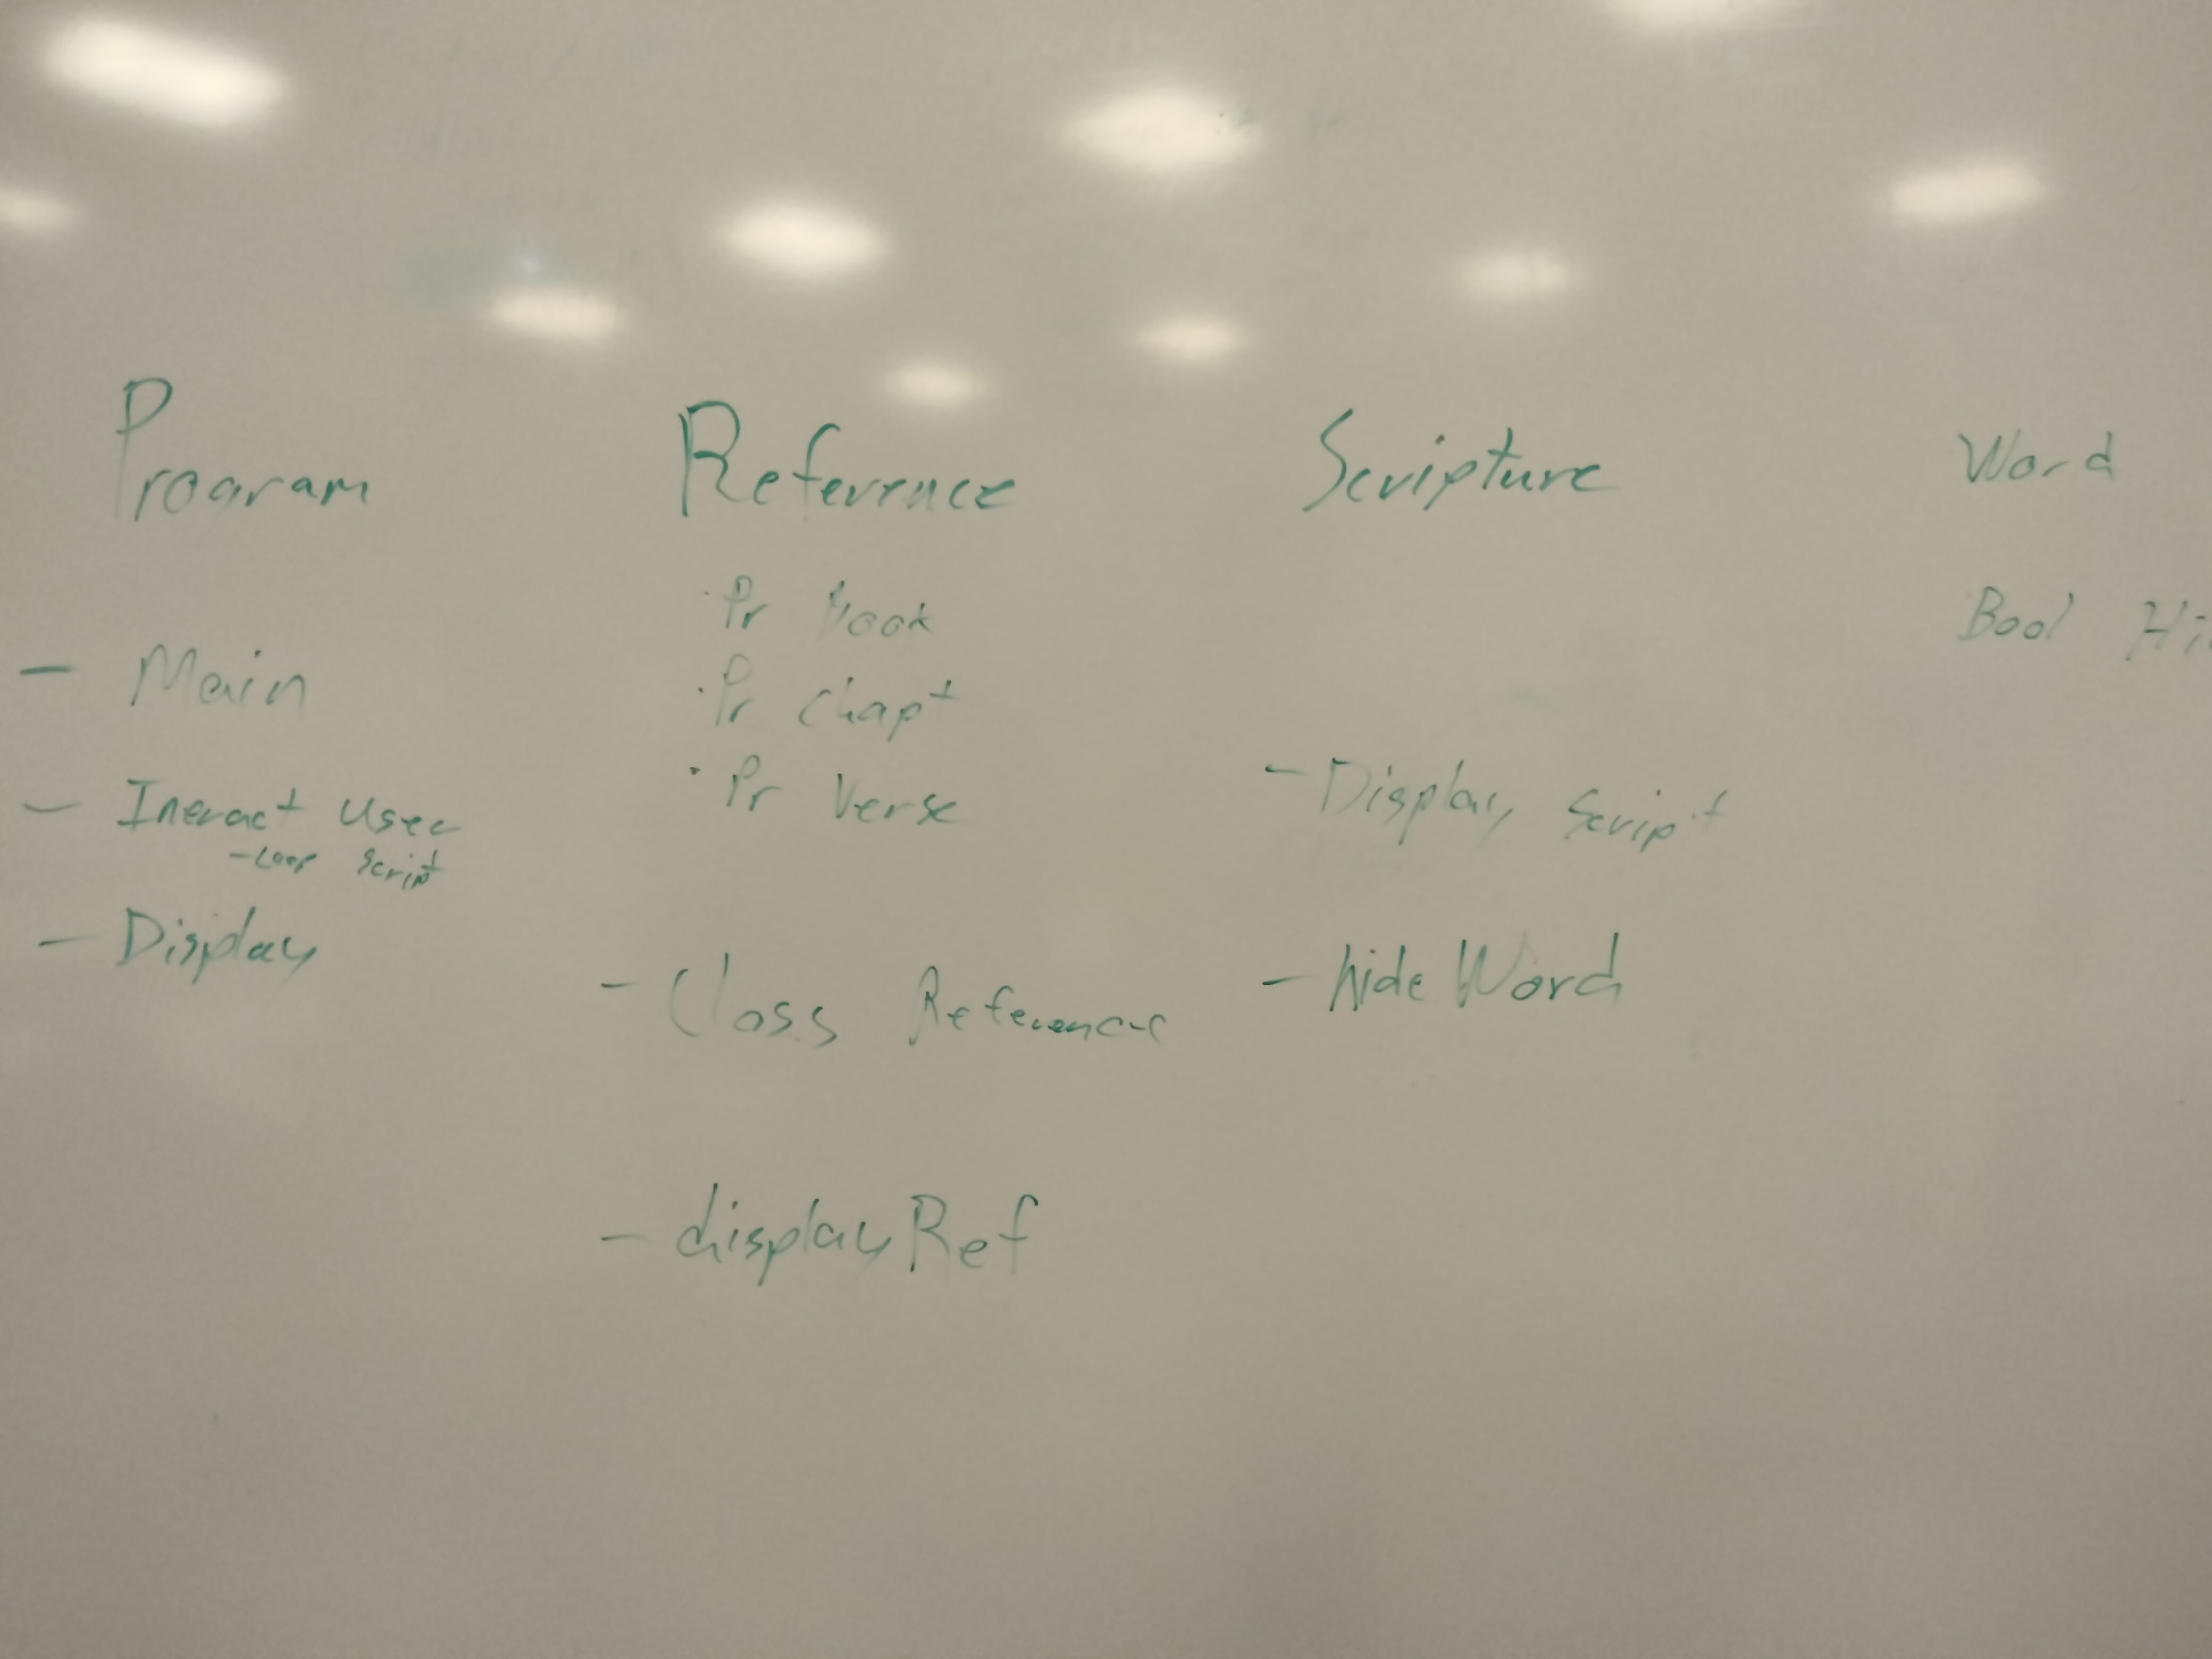 Program
- Main
- Ineract User
- Loop Script
- Display
Reference
· Pr Book
· Pr Chapt
· Pr Verse
- Class Reference
- displayRef
Scripture
- Display Script
- hideWord
Word
Bool Hi